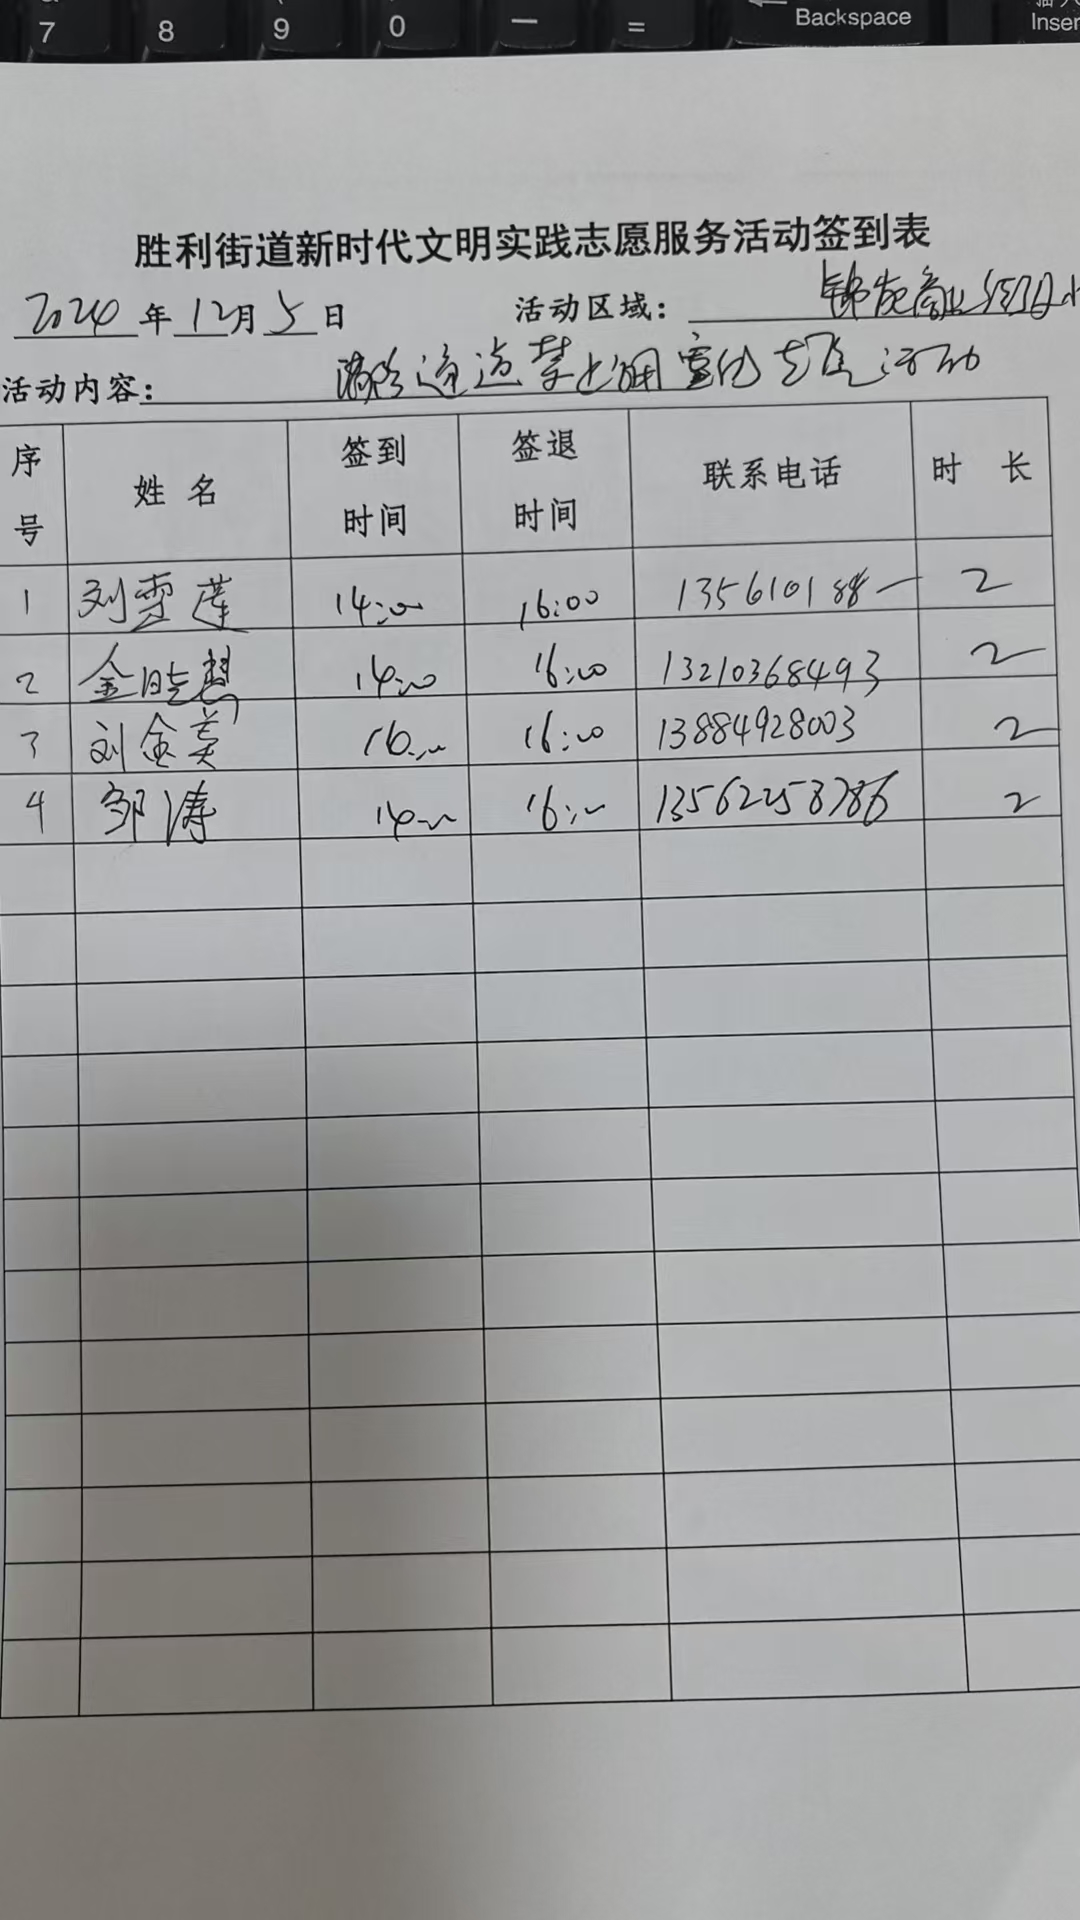 7 8 9 0 — = Backspace Inser
胜利街道新时代文明实践志愿服务活动签到表
2024年12月5日 活动区域: 锦苑商业
活动内容: 消防通道禁止 宣传志愿活动
序号 姓名 签到时间 签退时间 联系电话 时长
1 刘雪莲 14:00 16:00 2
2 金晓慧 14:00 16:00 13210368493 2
3 刘金美 16:00 13884928003 2
4 邹涛 14:00 16:00 13562258786 2